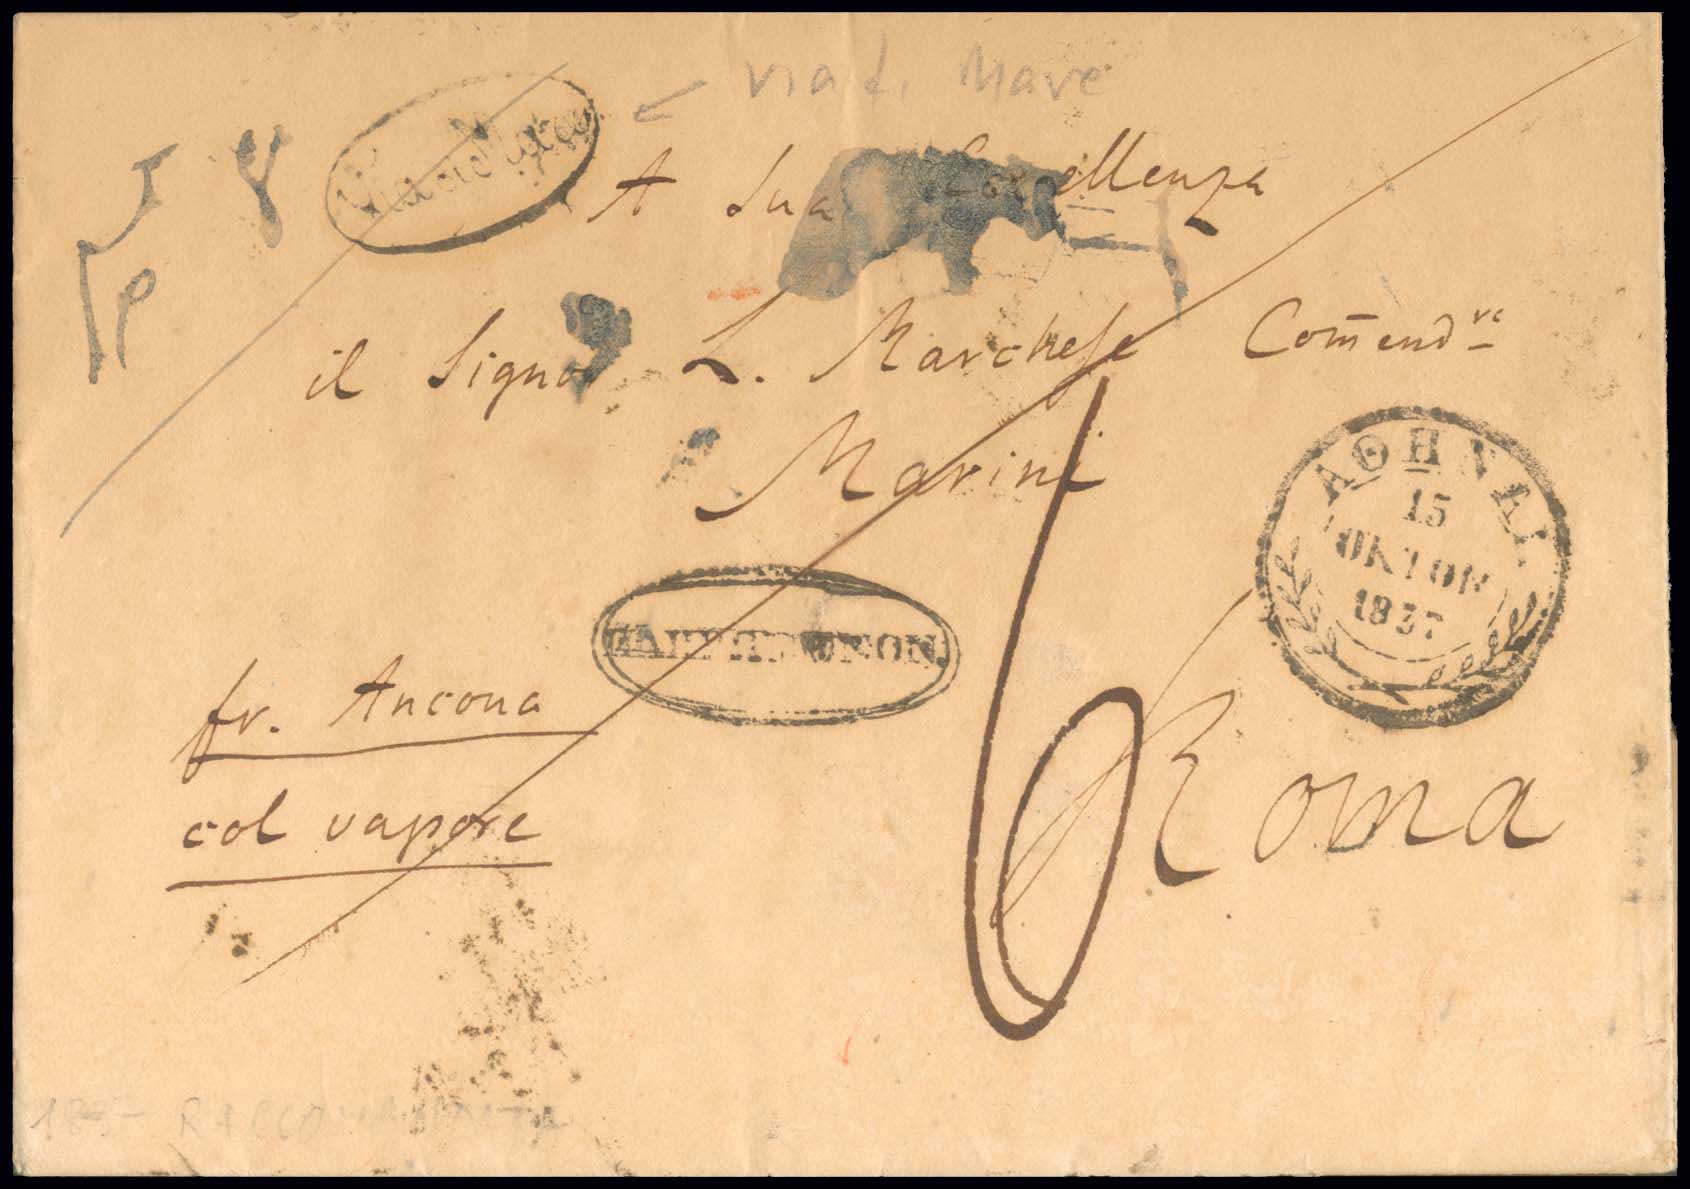 via di Mare
Via di Mare
A Sua Eccellenza
il Signor L. Marchese Comendre
Marini
ΑΘΗΝΑΙ
15
ΟΚΤΩΒ
1837
fr. Ancona
col vapore
6
Roma
RACCOMANDATA